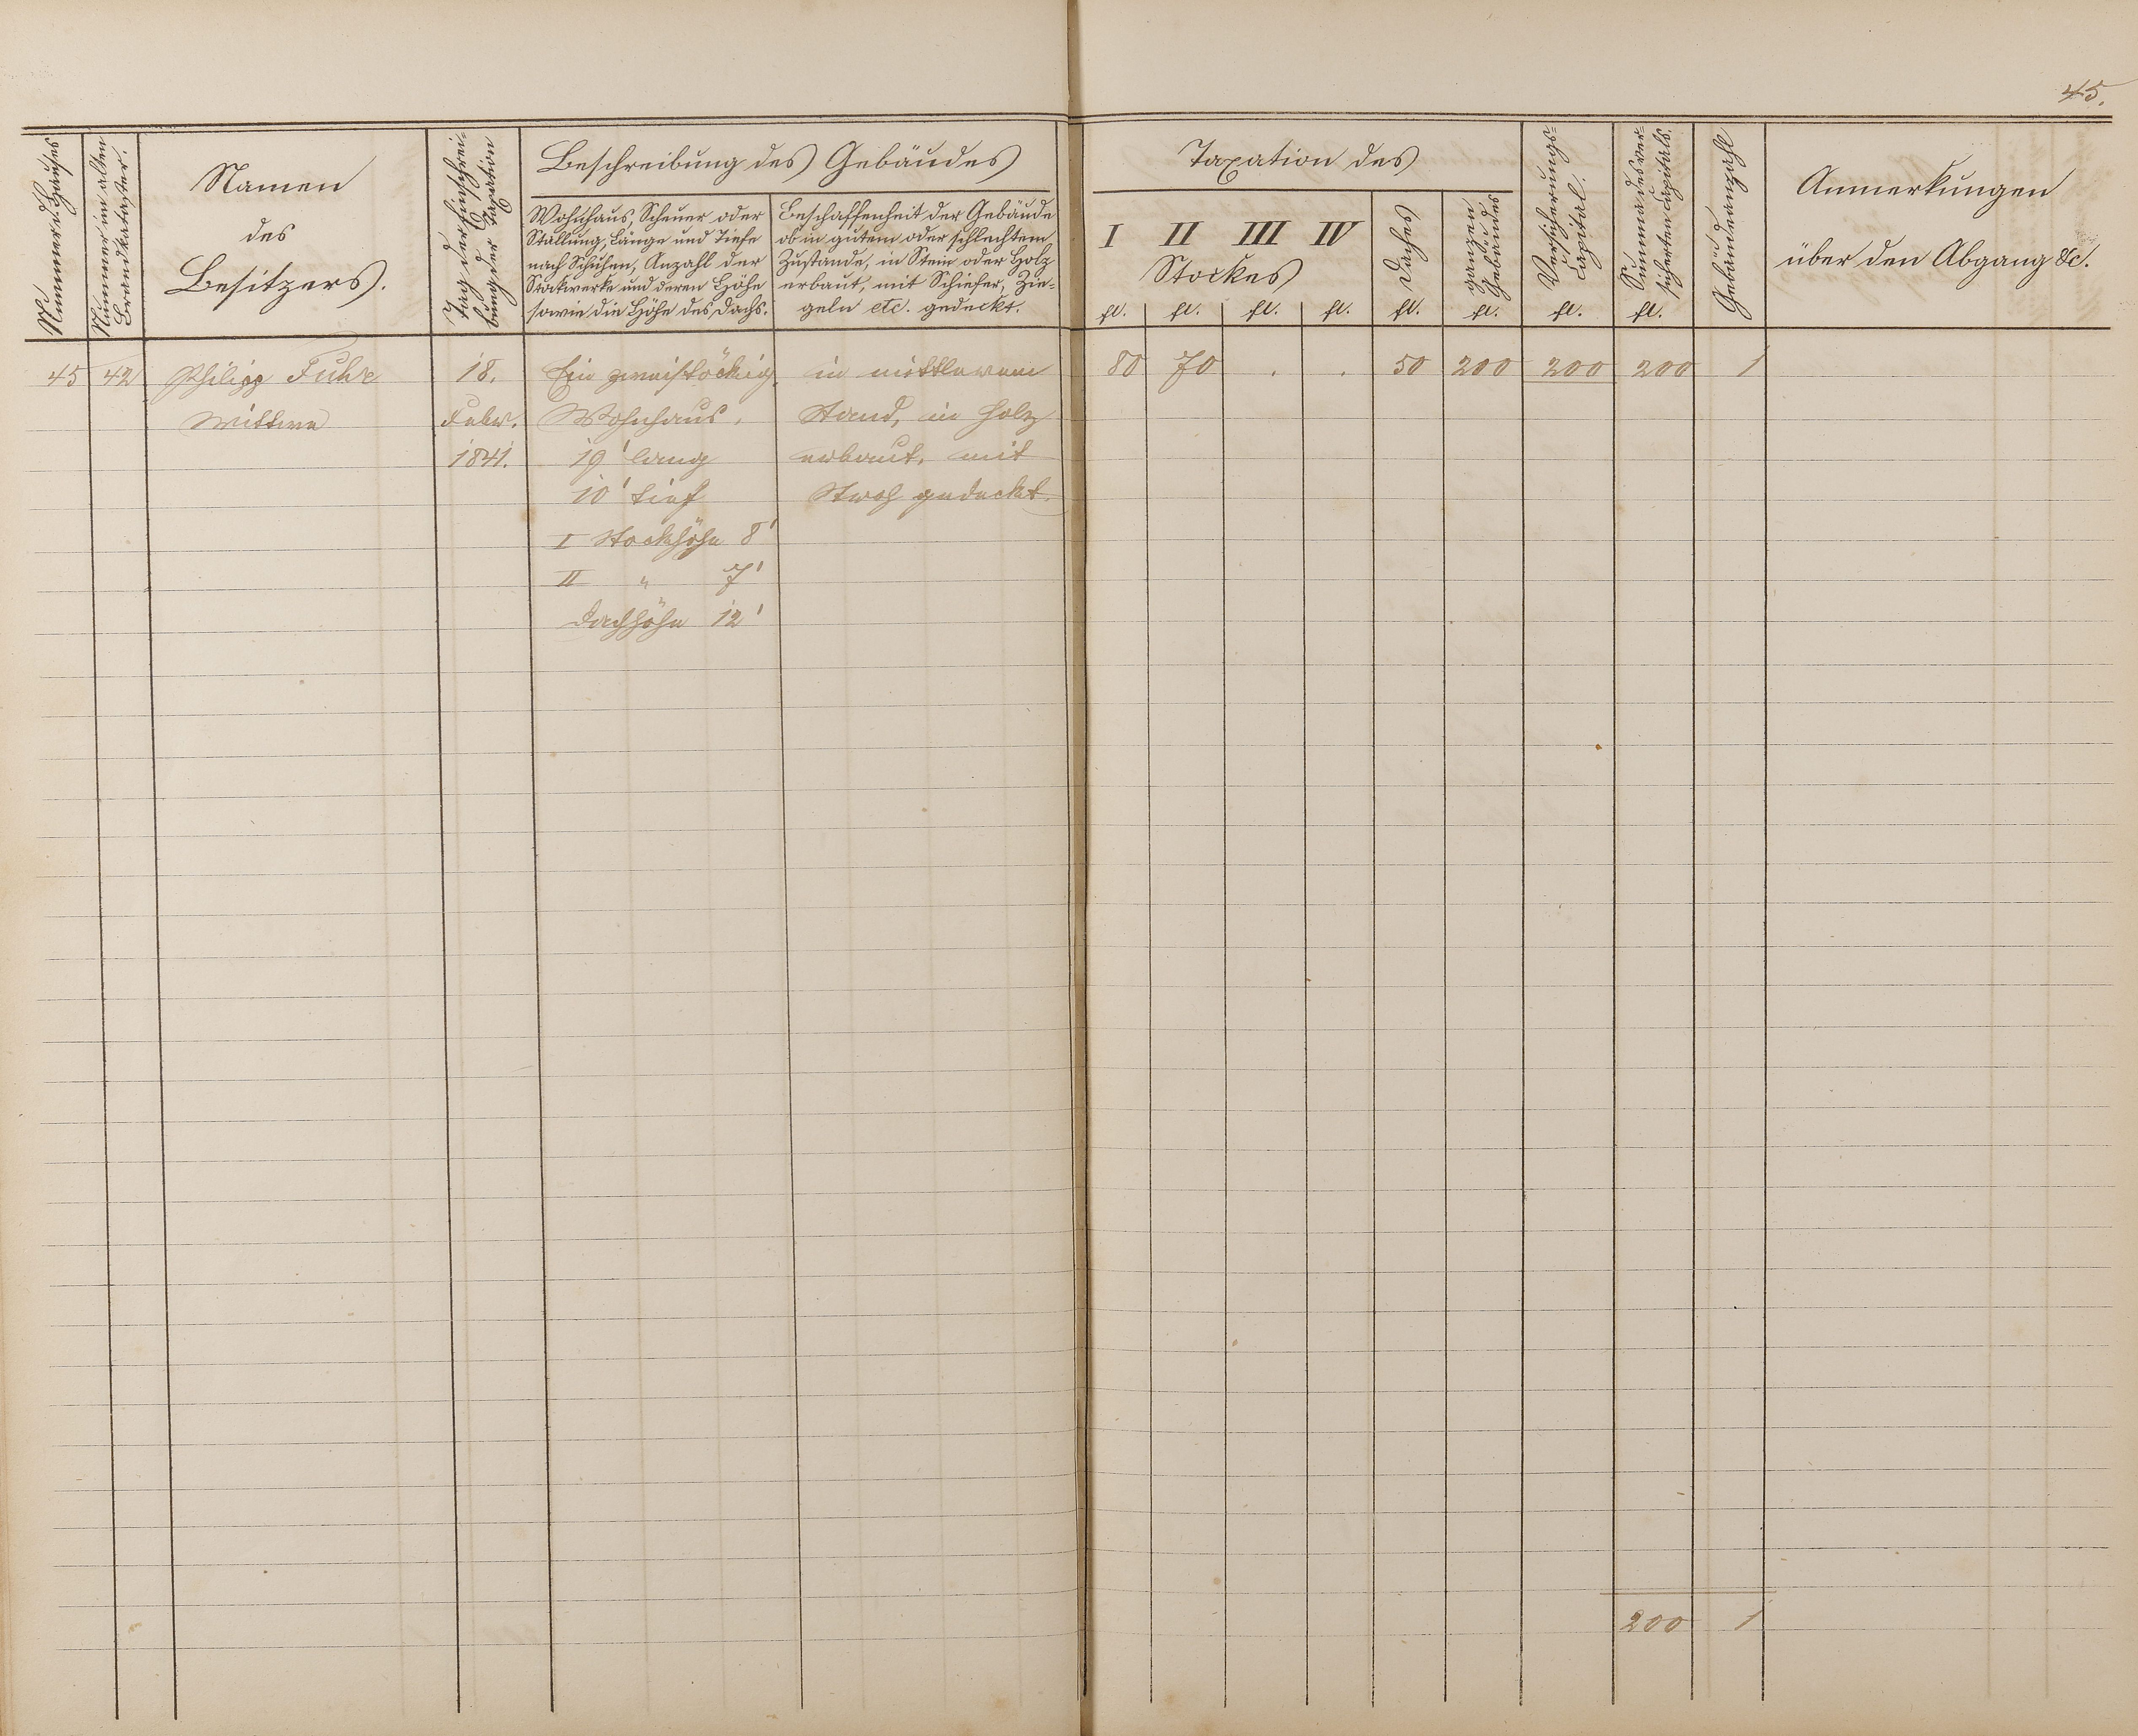 45.
Nummer d. Hauses
Nummer im alten
Brandkataster.
Namen
des
Besitzers.
Tag der Einschrei-
bung der Taxation
Beschreibung des Gebäudes
Wohnhaus, Scheuer oder
Stallung, Länge und Tiefe
nach Schuhen, Anzahl der
Stockwerke und deren Höhe
sowie die Höhe des Dachs.
Beschaffenheit der Gebäude
ob in gutem oder schlechtem
Zustande, in Stein oder Holz
erbaut, mit Schiefer, Zie-
geln etc. gedeckt.
Taxation des
I II III IV
Stockes
Daches
ganzen
Gebäudes
Versicherungs-
Capital.
Summa des ver-
sicherten Capitals.
Gebäudeanzahl
Anmerkungen
über den Abgang &c.
fl. fl. fl. fl. fl. fl. fl. fl.
45 42 Philipp Fuhr 18. Ein zweistöckig. in mittlerem 80 70 . . 50 200 200 200 1
Wittwe Febr. Wohnhaus, Stand, in Holz
1841. 19' lang erbaut, mit
10' tief Stroh gedeckt.
I Stockhöhe 8'
II " 7'
Dachhöhe 12'
200 1